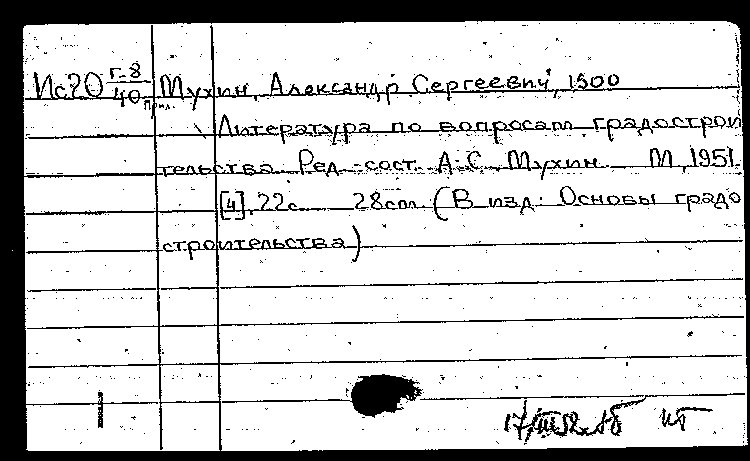 Ис20 Г-8/40 Мухин, Александр Сергеевич, 1900
Прил.
Литература по вопросам градострои
тельства. Ред.-сост. А.С. Мухин. М, 1951.
[4], 22с. 28см. (В изд: Основы градо
строительства)
17/III 52.